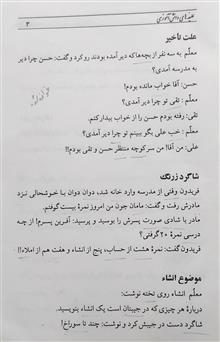 لطیفه‌های دانش‌آموزی
۳
علت تأخیر
معلّم به سه نفر از بچه‌ها که دیر آمده بودند رو کرد و گفت: حسن چرا دیر
به مدرسه آمدی؟
حسن: آقا خواب مانده بودم!
معلّم: تقی تو چرا دیر آمدی؟
تقی: رفته بودم حسن را از خواب بیدار کنم.
معلّم: خب علی بگو ببینم تو چرا دیر آمدی؟
علی: من آقا! من سر کوچه منتظر حسن و تقی بودم!!
شاگرد زرنگ
فریدون وقتی از مدرسه وارد خانه شد، دوان دوان با خوشحالی نزد
مادرش رفت و گفت: مامان جون من امروز نمرهٔ بیست گوفتم.
مادر با شادی صورت پسرش را بوسید و پرسید: آفرین پسرم! از چه
درسی نمرهٔ ۲۰ گرفتی؟
فریدون گفت: نمرهٔ هشت از حساب، پنج از انشاء و هفت هم از املاء!!
موضوع انشاء
معلّم انشاء روی تخته نوشت:
دربارهٔ هر چیزی که در جیبتان است یک انشاء بنویسید.
شاگرد دست در جیبش کرد و نوشت: چند تا سوراخ!